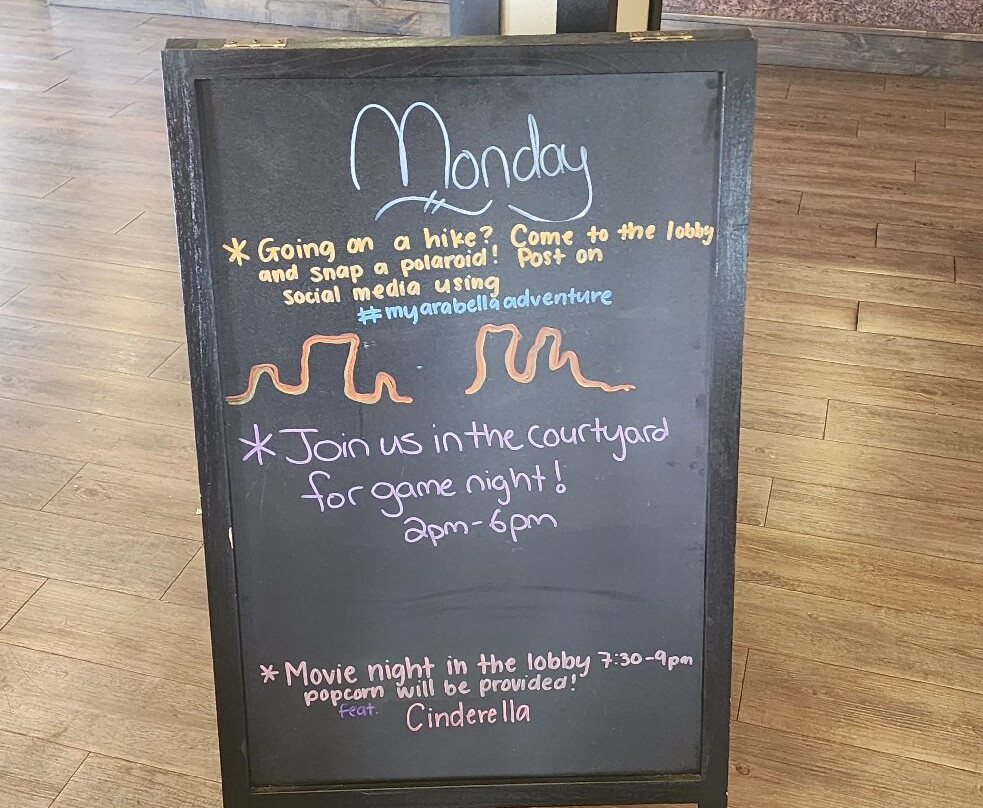 Monday
* Going on a hike? Come to the lobby
and snap a polaroid! Post on
social media using
#myarabellaadventure
* Join us in the courtyard
for game night!
2pm-6pm
* Movie night in the lobby 7:30-9pm
popcorn will be provided!
feat. Cinderella